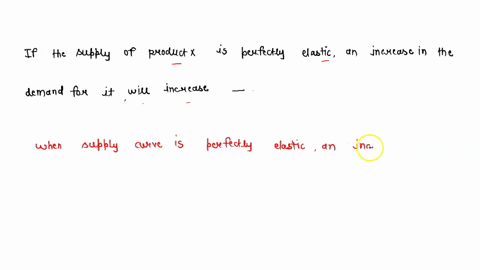 If the supply of product x is perfectly elastic, an increase in the
demand for it will increase —.
when supply curve is perfectly elastic, an inc